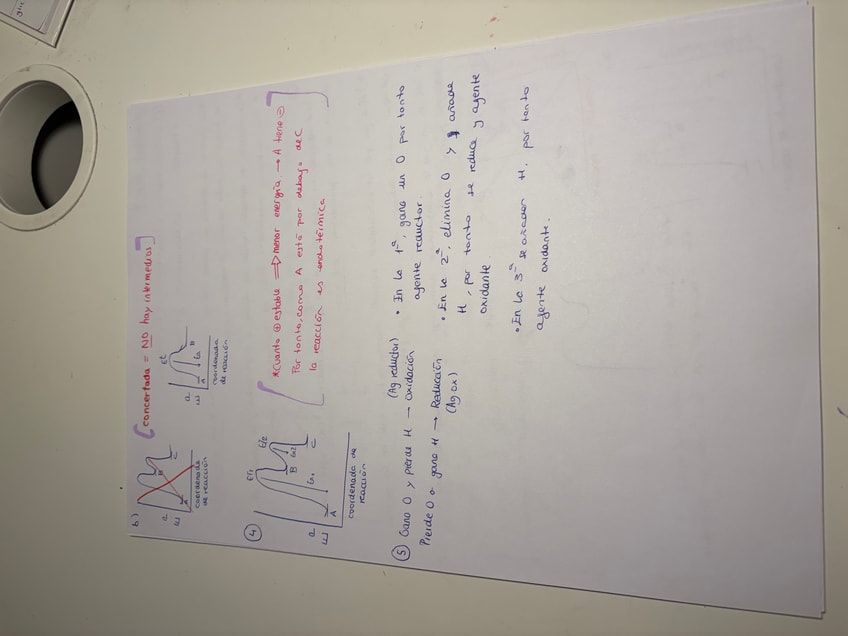 b)
[concertada = NO hay intermedios]
E
a
A
B
C
coordenada
de reacción
E
a
Et
Ea
A
B
coordenada
de reacción
4
E
a
Et1
Et2
Ea1
Ea2
A
B
C
coordenada de
reacción
*Cuanto ⊕ estable ⟹ menor energía → A tiene ⊖
Por tanto, como A está por debajo de C
la reacción es endotérmica
5 Gana O y pierde H → oxidación
(Ag reductor)
Pierde O o gana H → Reducción
(Ag ox)
• En la 1ª, gana un O por tanto
agente reductor.
• En la 2ª, elimina O y añade
H, por tanto se reduce y agente
oxidante.
• En la 3ª se añaden H, por tanto
agente oxidante.